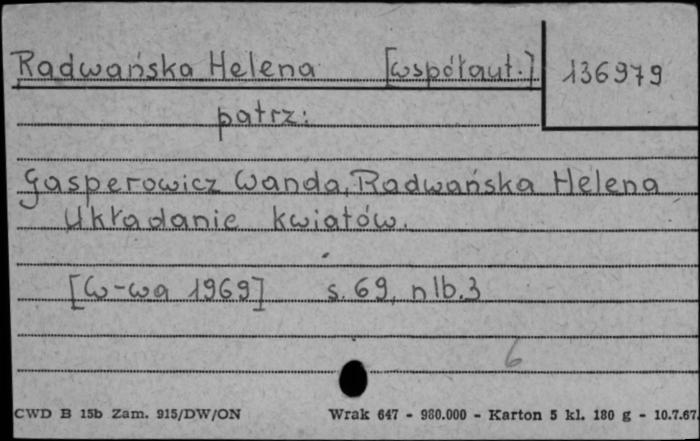 Radwańska Helena [współaut.] 136979
patrz:
Gasperowicz Wanda, Radwańska Helena
Układanie kwiatów.
[W-wa 1969] s. 69, nlb. 3
6
CWD B 15b Zam. 915/DW/ON Wrak 647 - 980.000 - Karton 5 kl. 180 g - 10.7.67.